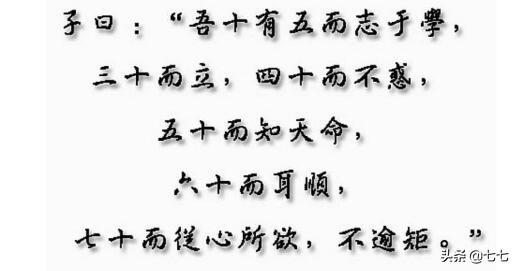 子曰：“吾十有五而志于學，
三十而立，四十而不惑，
五十而知天命，
六十而耳順，
七十而從心所欲，不逾矩。”
头条 @七七